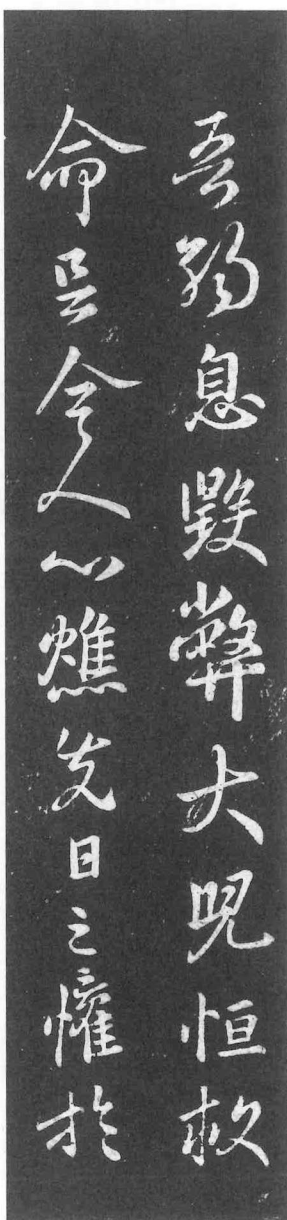 吾弱息毀弊大兒恒救
命足令人心燋先日之懽於